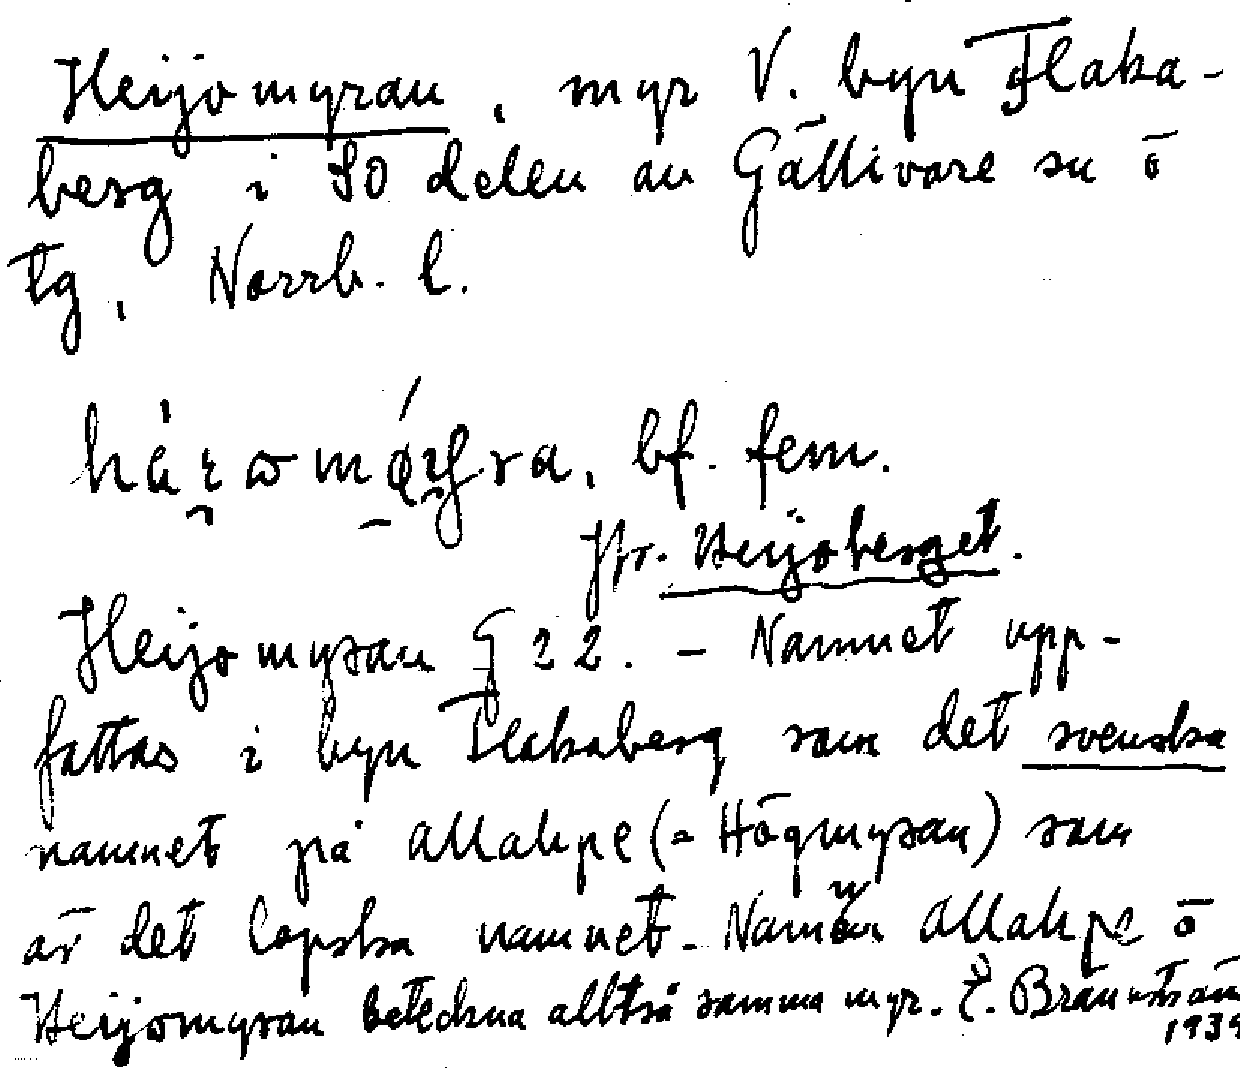 Heijomyran, myr V. byn Flaka-
berg i SO delen av Gällivare sn o
tg, Norrb. l.
bf. fem.
Jfr. Heijoberget.
Heijomyran G 22. - Namnet upp-
fattas i byn Flakaberg som det svenska
namnet på Allahpe (= Högmyran) som
är det lapska namnet. Namnen Allahpe o
Heijomyran beteckna alltså samma myr. E. Brännström
1939